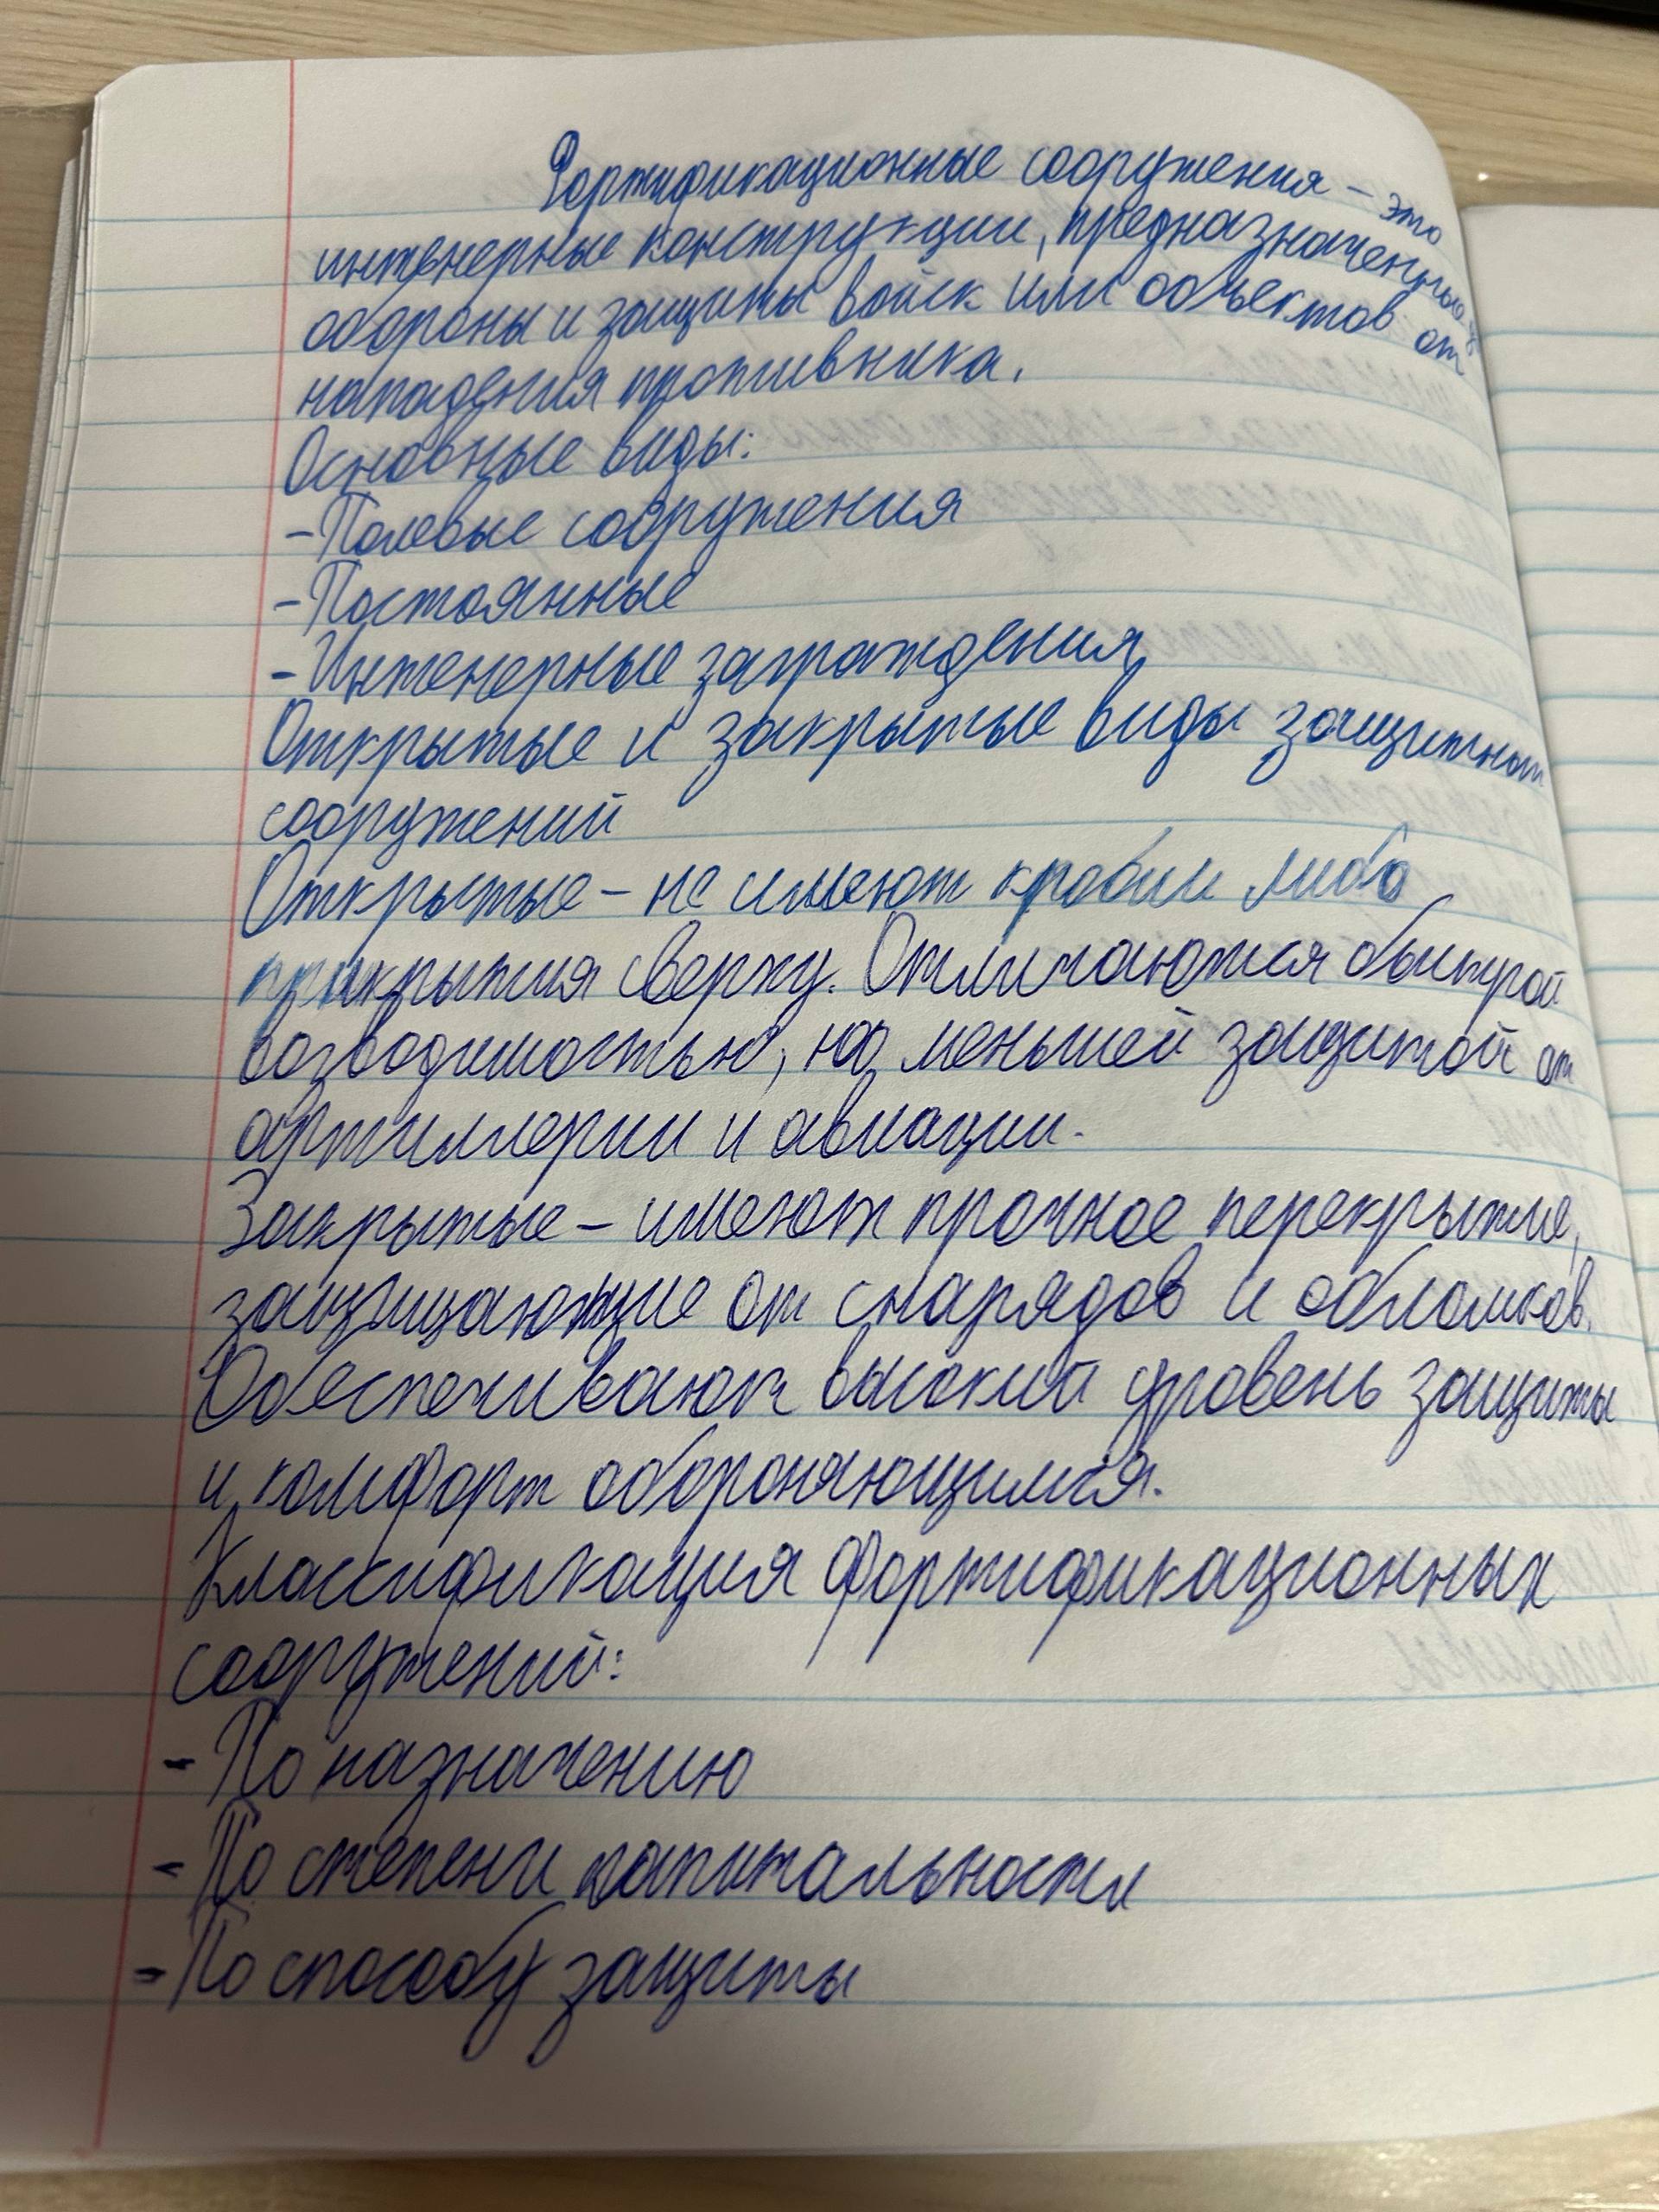 Фортификационные сооружения – это
инженерные конструкции, предназначенные
обороны и защиты войск или объектов от
нападения противника.
Основные виды:
- Полевые сооружения
- Постоянные
- Инженерные заграждения
Открытые и закрытые виды защитных
сооружений
Открытые – не имеют кровли либо
прикрытия сверху. Отличаются быстрой
возводимостью, но меньшей защитой от
артиллерии и авиации.
Закрытые – имеют прочное перекрытие,
защищающие от снарядов и обломков.
Обеспечивают высокий уровень защиты
и комфорт обороняющимся.
Классификация фортификационных
сооружений:
- По назначению
- По степени капитальности
- По способу защиты